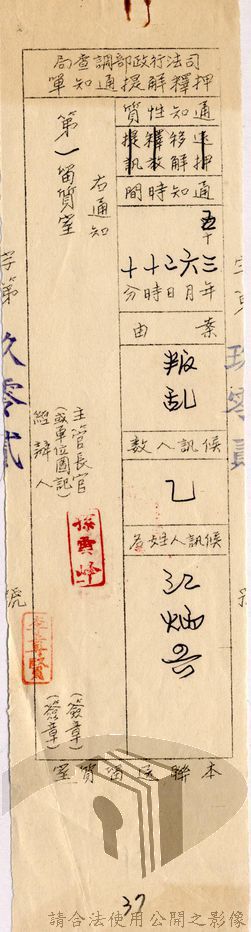 司法行政部調查局
押釋解提通知單
通知性質
還押
移解
釋放
提訊
通知時間
五十三年六月二日十時十分
案由
叛亂
候訊人數
乙
候訊人姓名
江炳興
右通知
第一留質室
主管長官
(或單位圖記)
經辦人
孫雲峰
(簽章)
(簽章)
本聯送留質室
字第
玖零貳
號
37
請合法使用公開之影像